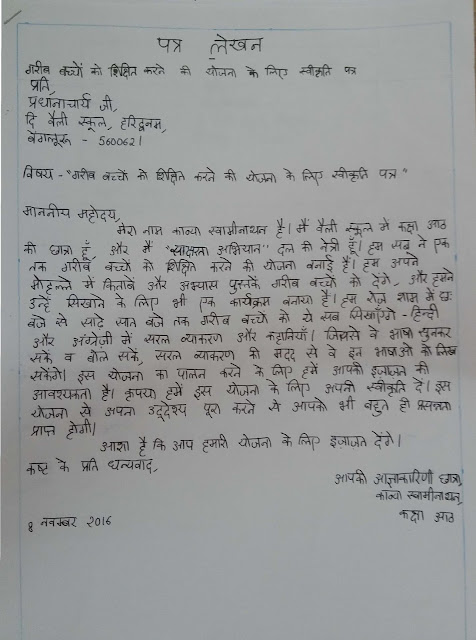 पत्र लेखन
गरीब बच्चों को शिक्षित करने की योजना के लिए स्वीकृति पत्र
प्रति,
प्रधानाचार्य जी,
दि वैली स्कूल, हरिद्वनम,
बेंगलूरू - 560062
विषय - "गरीब बच्चों को शिक्षित करने की योजना के लिए स्वीकृति पत्र"
माननीय महोदय,
मेरा नाम काव्या स्वामीनाथन है। मैं वैली स्कूल में कक्षा आठ
की छात्रा हूँ और मैं "साक्षरता अभियान" दल की नेत्री हूँ। हम सब ने एक
तक गरीब बच्चों को शिक्षित करने की योजना बनाई है। हम अपने
मोहल्ले में किताबें और अभ्यास पुस्तकें गरीब बच्चों को देंगे, और हमने
उन्हें सिखाने के लिए भी एक कार्यक्रम बनाया है। हम रोज़ शाम में छः
बजे से साढ़े सात बजे तक गरीब बच्चों को ये सब सिखाएँगे - हिन्दी
और अंग्रेज़ी में सरल व्याकरण और कहानियाँ। जिससे वे भाषा सुनकर
सकें व बोल सकें, सरल व्याकरण की मदद से वे इन भाषाओं को लिख
सकेंगे। इस योजना का पालन करने के लिए हमें आपकी इजाज़त की
आवश्यकता है। कृपया हमें इस योजना के लिए अपनी स्वीकृति दें। इस
योजना से अपना उद्देश्य पूरा करने से आपको भी बहुत ही प्रसन्नता
प्राप्त होगी।
आशा है कि आप हमारी योजना के लिए इजाज़त देंगे।
कष्ट के प्रति धन्यवाद,
आपकी आज्ञाकारिणी छात्रा,
काव्या स्वामीनाथन,
कक्षा आठ
8 नवम्बर 2016